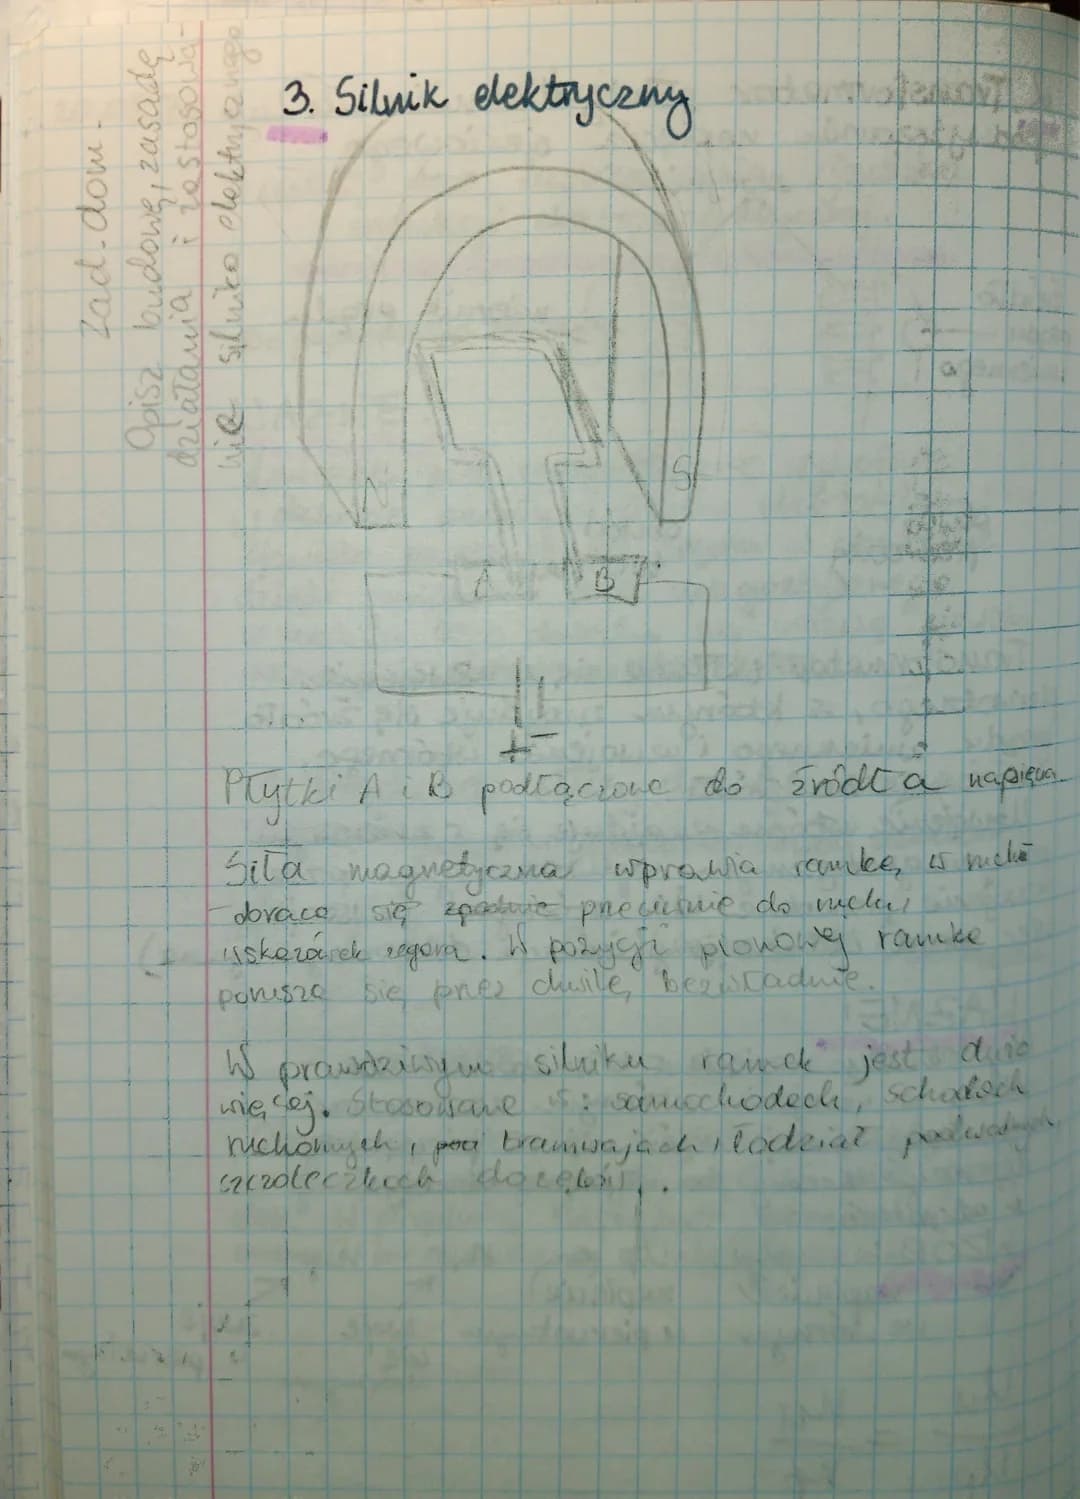 3. Silnik elektryczny
Zad. dom.
Opisz budowę, zasadę
działania i zastosowa-
nie silnika elektrycznego
N
S
A
B
+ -
Płytki A i B podłączone do źródła napięcia
Siła magnetyczna wprawia ramkę w ruch
obraca się zgodnie przeciwnie do ruchu
wskazówek zegara. W pozycji pionowej ramka
porusza się przez chwilę bezwładnie.
W prawdziwym silniku ramek jest dużo
więcej. Stosowane w: samochodach, schodach
ruchomych, tramwajach, łodział podwodnych
szczoteczkach do zębów.